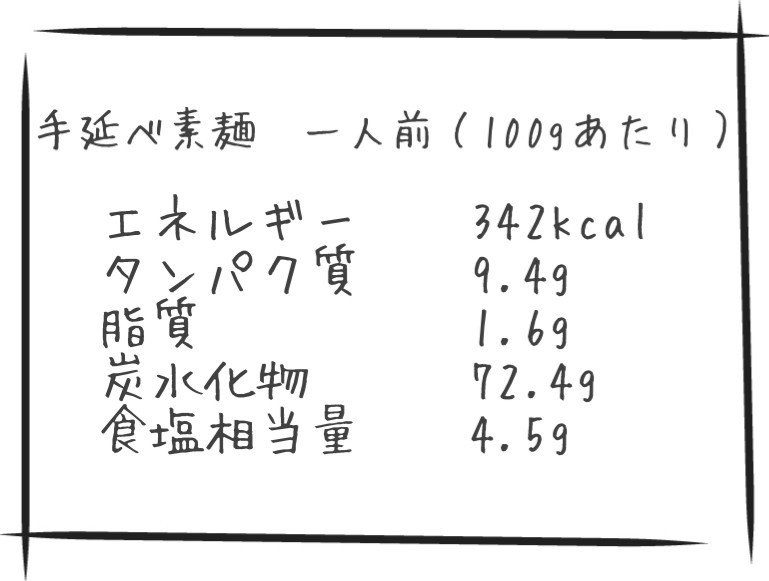 手延べ素麺　一人前(100gあたり)
エネルギー　342kcal
タンパク質　9.4g
脂質　1.6g
炭水化物　72.4g
食塩相当量　4.5g